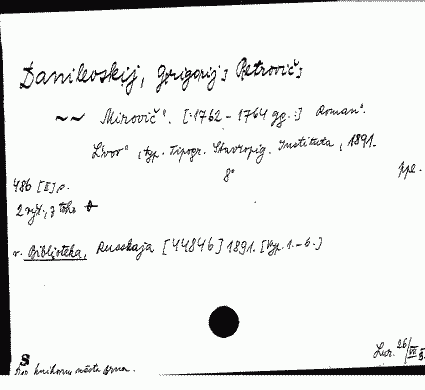 Danilevskij, Grigorij Petrovič
~~ Mirovič". [1762 - 1764 gg.] Roman".
L'vov", typ. Tipogr. Stavropig. Instituta, 1891.
8°
ppe.
486 [II] p.
2 výt., z toho
v. Biblioteka, Russkaja [44846] 1891. [Vyp. 1.-6.]
S
knihovna města Brna.
26/VII